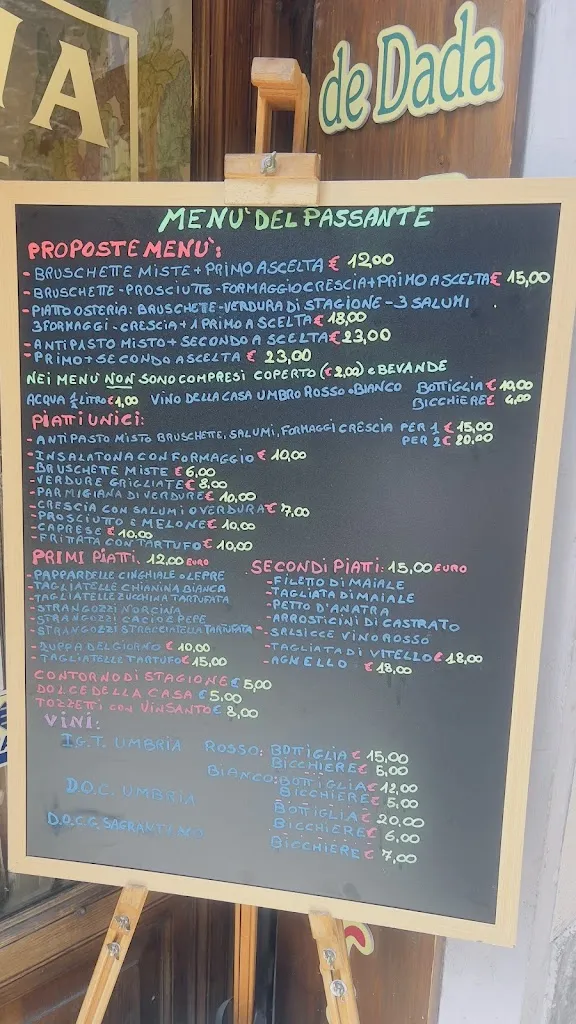 IA
de Dada
MENU' DEL PASSANTE
PROPOSTE MENU':
- BRUSCHETTE MISTE + PRIMO A SCELTA € 12,00
- BRUSCHETTE - PROSCIUTTO - FORMAGGIO CRESCIA + PRIMO A SCELTA € 15,00
- PIATTO OSTERIA: BRUSCHETTE - VERDURA DI STAGIONE - 3 SALUMI
3 FORMAGGI - CRESCIA + 1 PRIMO A SCELTA € 18,00
- ANTIPASTO MISTO + SECONDO A SCELTA € 23,00
- PRIMO + SECONDO A SCELTA € 23,00
NEI MENU' NON SONO COMPRESI COPERTO (€ 2,00) e BEVANDE
ACQUA ½ LITRO € 1,00 VINO DELLA CASA UMBRO ROSSO o BIANCO BOTTIGLIA € 10,00
BICCHIERE € 4,00
PIATTI UNICI:
- ANTIPASTO MISTO BRUSCHETTE, SALUMI, FORMAGGI CRESCIA PER 1 € 15,00
PER 2 € 20,00
- INSALATONA CON FORMAGGIO € 10,00
- BRUSCHETTE MISTE € 6,00
- VERDURE GRIGLIATE € 8,00
- PARMIGIANA DI VERDURE € 10,00
- CRESCIA CON SALUMI O VERDURA € 7,00
- PROSCIUTTO E MELONE € 10,00
- CAPRESE € 10,00
- FRITTATA CON TARTUFO € 10,00
PRIMI PIATTI: 12,00 EURO
- PAPPARDELLE CINGHIALE o LEPRE
- TAGLIATELLE CHIANINA BIANCA
- TAGLIATELLE ZUCCHINA TARTUFATA
- STRANGOZZI NORCINA
- STRANGOZZI CACIO E PEPE
- STRANGOZZI STRACCIATELLA TARTUFATA
- ZUPPA DEL GIORNO € 10,00
- TAGLIATELLE TARTUFO € 15,00
SECONDI PIATTI: 15,00 EURO
- FILETTO DI MAIALE
- TAGLIATA DI MAIALE
- PETTO D'ANATRA
- ARROSTICINI DI CASTRATO
- SALSICCE VINO ROSSO
- TAGLIATA DI VITELLO € 18,00
- AGNELLO € 18,00
CONTORNO DI STAGIONE € 5,00
DOLCE DELLA CASA € 5,00
TOZZETTI CON VINSANTO € 8,00
VINI:
I.G.T. UMBRIA ROSSO: BOTTIGLIA € 15,00
BICCHIERE € 5,00
BIANCO: BOTTIGLIA € 12,00
BICCHIERE € 5,00
D.O.C. UMBRIA BOTTIGLIA € 20,00
BICCHIERE € 6,00
D.O.C.G. SAGRANTINO BICCHIERE € 7,00